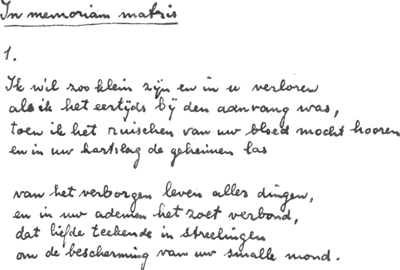 In memoriam matris
1.
Ik wil zoo klein zijn en in u verloren
als ik het eertijds bij den aanvang was,
toen ik het ruischen van uw bloed mocht hooren
en in uw hartslag de geheimen las
van het verborgen leven aller dingen,
en in uw ademen het zoet verbond,
dat liefde teekende in streelingen
om de bescherming van uw smalle mond.